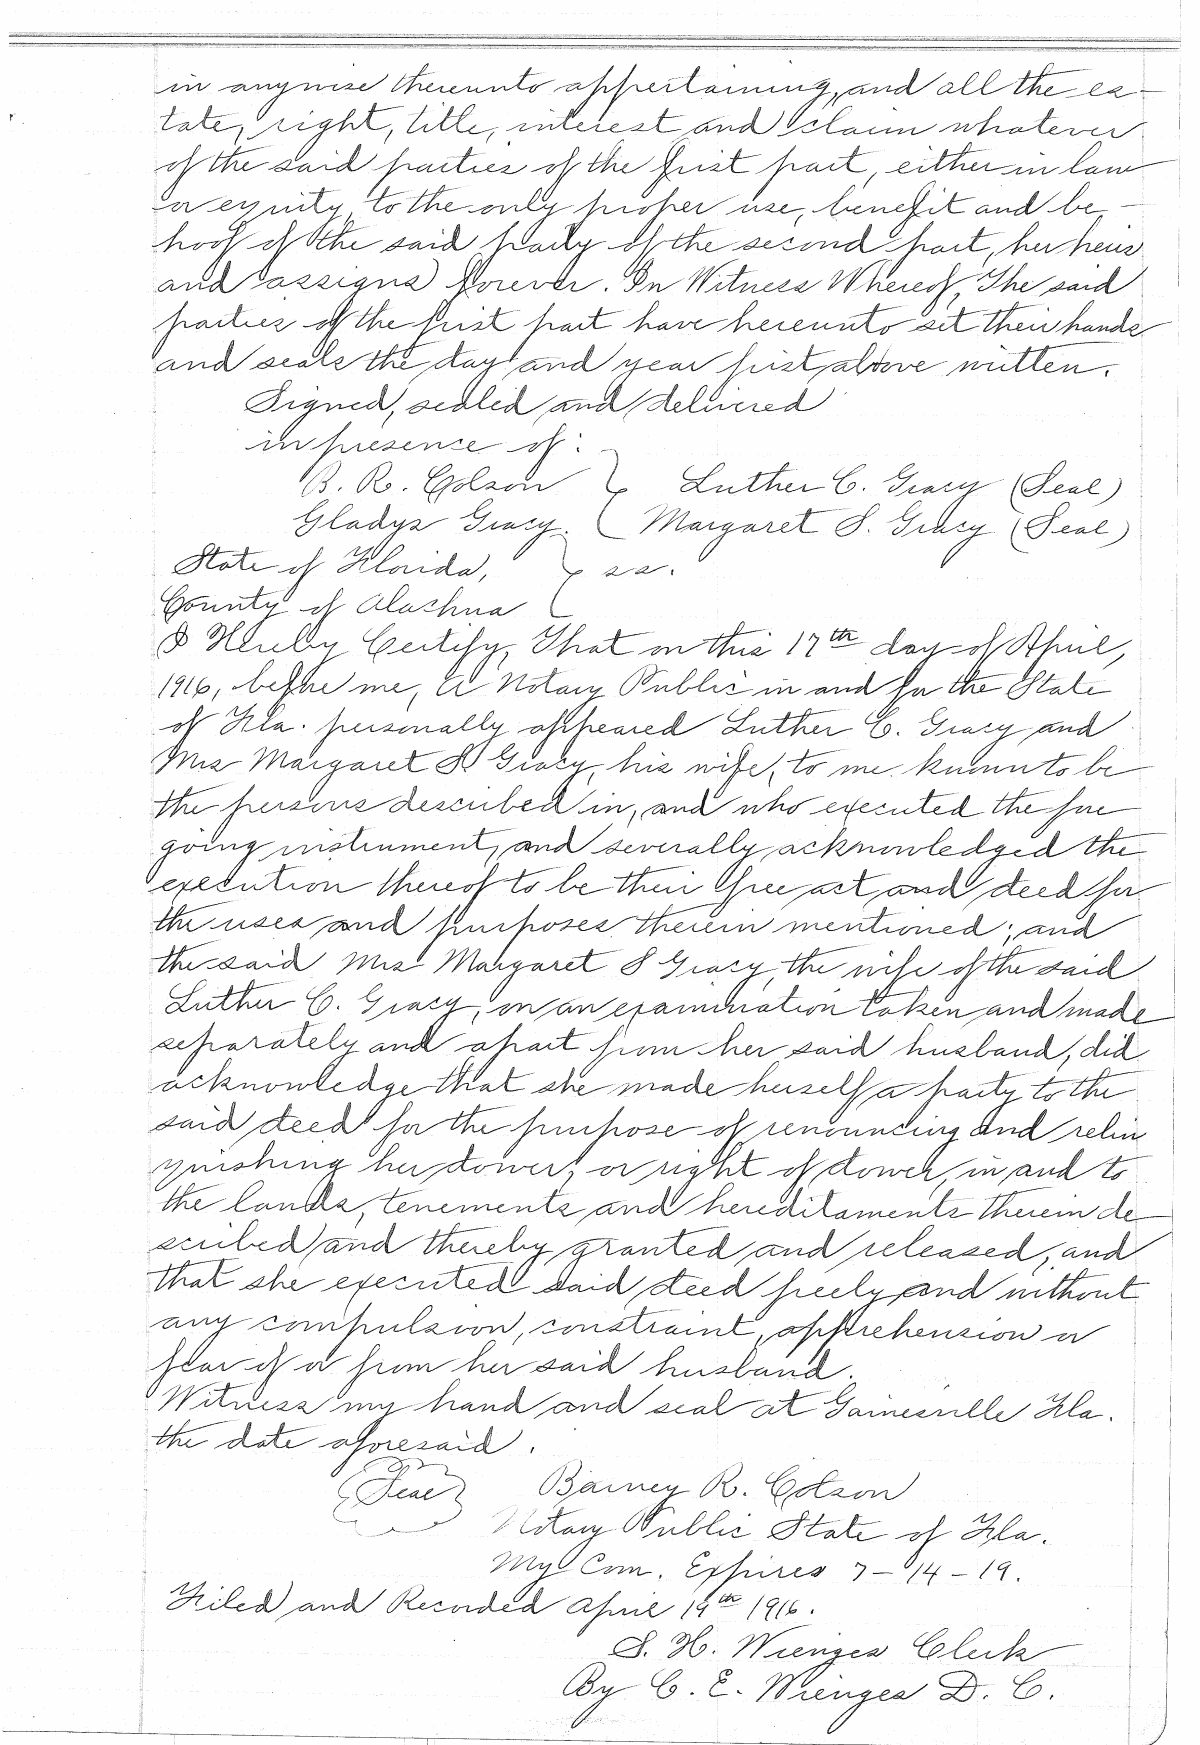 in anywise thereunto appertaining, and all the es-
tate, right, title, interest and claim whatever
of the said parties of the first part, either in law
or equity, to the only proper use, benefit and be-
hoof of the said party of the second part, her heirs
and assigns forever. In Witness Whereof, The said
parties of the first part have hereunto set their hands
and seals the day and year first above written.
Signed, sealed and delivered
in presence of:
B. R. Colson } Luther C. Gracy (Seal)
Gladys Gracy. { Margaret S. Gracy (Seal)
State of Florida, } s.s.
County of Alachua
I Hereby Certify, That on this 17th day of April,
1916, before me, a Notary Public in and for the State
of Fla. personally appeared Luther C. Gracy and
Mrs Margaret S Gracy, his wife, to me known to be
the persons described in, and who executed the fore
going instrument, and severally acknowledged the
execution thereof to be their free act and deed for
the uses and purposes therein mentioned; and
the said Mrs Margaret S Gracy, the wife of the said
Luther C. Gracy, on an examination taken and made
separately and apart from her said husband, did
acknowledge that she made herself a party to the
said deed for the purpose of renouncing and relin
quishing her dower, or right of dower, in and to
the lands, tenements and hereditaments therein de-
scribed and thereby granted and released, and
that she executed said deed freely and without
any compulsion, constraint, apprehension or
fear of or from her said husband.
Witness my hand and seal at Gainesville Fla.
the date aforesaid.
(Seal) Barney R. Colson
Notary Public State of Fla.
My Com. Expires 7-14-19.
Filed and Recorded April 19th 1916.
S. H. Wienges Clerk
By C. E. Wienges D. C.